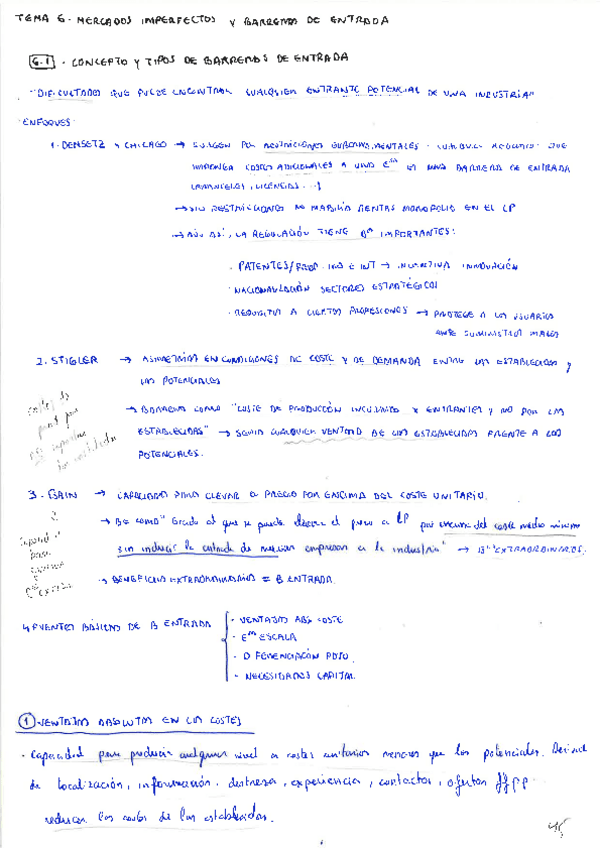 TEMA 6. MERCADOS IMPERFECTOS Y BARRERAS DE ENTRADA
6.1. CONCEPTO Y TIPOS DE BARRERAS DE ENTRADA
"DIFICULTADES QUE PUEDE ENCONTRAR CUALQUIER ENTRANTE POTENCIAL DE UNA INDUSTRIA"
ENFOQUES
1. DEMSETZ Y CHICAGO → SURGEN POR RESTRICCIONES GUBERNAMENTALES. CUALQUIER REQUISITO QUE
IMPONGA COSTES ADICIONALES A UNA Eᵐ ES UNA BARRERA DE ENTRADA
(ARANCELES, LICENCIAS...)
→ SIN RESTRICCIONES NO HABRÍA RENTAS MONOPOLIO EN EL LP
→ AÚN ASÍ, LA REGULACIÓN TIENE Bº IMPORTANTES:
· PATENTES/PROP. IND E INT → INCENTIVA INNOVACIÓN
· NACIONALIZACIÓN SECTORES ESTRATÉGICOS
· REQUISITOS A CIERTAS PROFESIONES → PROTEGE A LOS USUARIOS
ANTE SUMINISTROS MALOS
2. STIGLER → ASIMETRÍAS EN CONDICIONES DE COSTE Y DE DEMANDA ENTRE LAS ESTABLECIDAS Y
LAS POTENCIALES
→ BARRERAS COMO "COSTE DE PRODUCCIÓN INCURRIDO X ENTRANTES Y NO POR LAS
ESTABLECIDAS" → SERÍA CUALQUIER VENTAJA DE LAS ESTABLECIDAS FRENTE A LAS
POTENCIALES.
3. BAIN → CAPACIDAD PARA ELEVAR EL PRECIO POR ENCIMA DEL COSTE UNITARIO.
→ BE COMO "Grado al que se puede elevar el precio a LP por encima del coste medio mínimo
sin inducir la entrada de nuevas empresas a la industria" → Bº EXTRAORDINARIOS.
→ BENEFICIOS EXTRAORDINARIOS = B ENTRADA.
4 FUENTES BÁSICAS DE B ENTRADA
· VENTAJAS ABS COSTE
· Eᵃˢ ESCALA
· DIFERENCIACIÓN PDTO.
· NECESIDADES CAPITAL.
1 VENTAJAS ABSOLUTAS EN LOS COSTES
· Capacidad para producir cualquier nivel a costes unitarios menores que los potenciales. Deriva
de localización, información, destreza, experiencia, contactos, ofertas ffpp
reducen los costes de las establecidas.